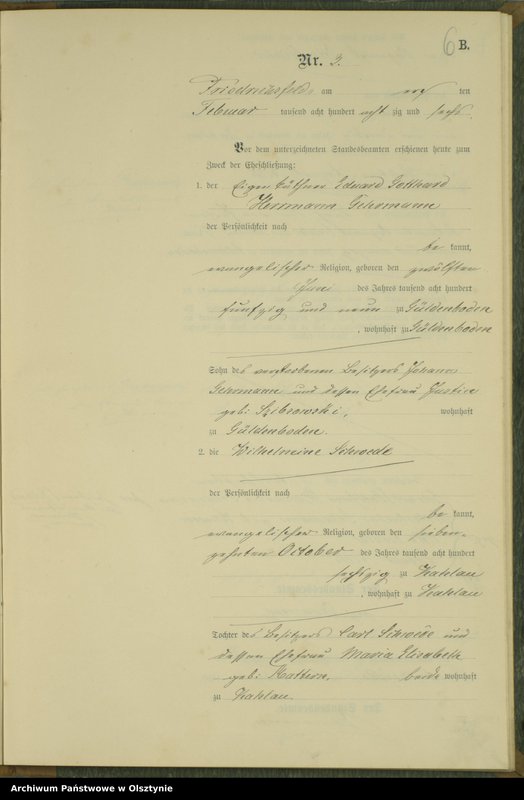 6 B.
Nr. 3.
am ten
Februar tausend acht hundert acht zig und sechs.
Vor dem unterzeichneten Standesbeamten erschienen heute zum
Zweck der Eheschließung:
1. der Eigenkäthner Eduard Gotthard
Herrmann Gehrmann
der Persönlichkeit nach
be kannt,
evangelischer Religion, geboren den zwölften
des Jahres tausend acht hundert
fünfzig und neun zu Güldenboden
, wohnhaft zu Güldenboden
Sohn des verstorbenen Besitzers Johann
Gehrmann und dessen Ehefrau Justine
geb: wohnhaft
zu Güldenboden.
2. die Wilhelmine Schwede
der Persönlichkeit nach
be kannt,
evangelischer Religion, geboren den sieben-
zehnten October des Jahres tausend acht hundert
sechszig zu Kahlau
, wohnhaft zu Kahlau
Tochter des Besitzers Carl Schwede und
dessen Ehefrau Maria Elisabeth
geb: beide wohnhaft
zu Kahlau.
Archiwum Państwowe w Olsztynie